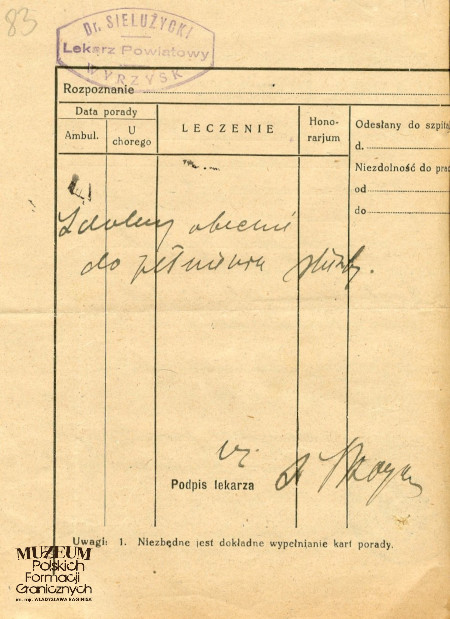 83
Dr. SIELUŻYCKI
Lekarz Powiatowy
WYRZYSK
Rozpoznanie
Data porady
Ambul.
U chorego
LECZENIE
Hono-
rarjum
Odesłany do szpita
d.
Niezdolność do pra
od
do
Zdolny obecnie
do pełnienia służby.
Podpis lekarza
Uwagi: 1. Niezbędne jest dokładne wypełnianie kart porady.
MUZEUM
Polskich
Formacji
Granicznych
im. mjr. WŁADYSŁAWA RAGINISA